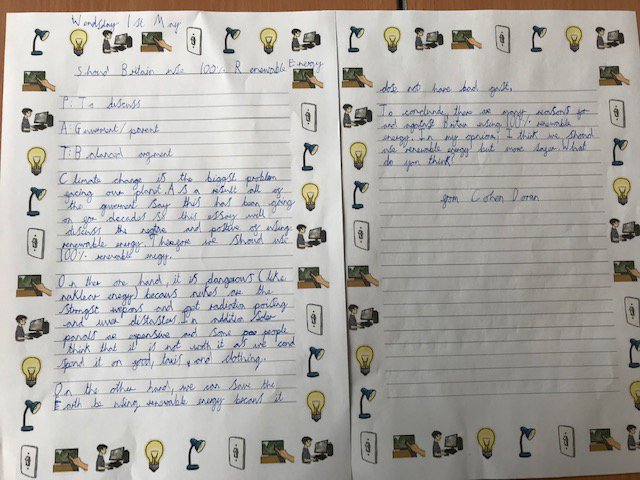 Wendsday 1st May
Shoud Britain use 100% Renewable Energy
P: To discuss
A: Guverment/parent
T: Balanced argment
Climate change is the biggest problem
facing our planet. As a result all of
the guverment say this has been going
on for decades so this essay will
discuss the negtive and postive of using
renewable energy. Therfore we shoud use
100% renewable enegy.
On ther one hand, it is dangerous (like
nuklear enegy) becaus nukes are the
strongst wepons and get radiation poising
and even distasters. In addition Soler
panals are expensive and some poo people
think that it is not worth it as we coud
spend it on food, taxis, and clothing.
On the other hand, we can save the
Earth be using renewable energy becaus it
dose not have bad
To conclude, there are many reasons for
and against Britain using 100% renewable
energy. In my opinion, I think we shoud
use renewable energy but more What
do you think?
from Cohen Doran